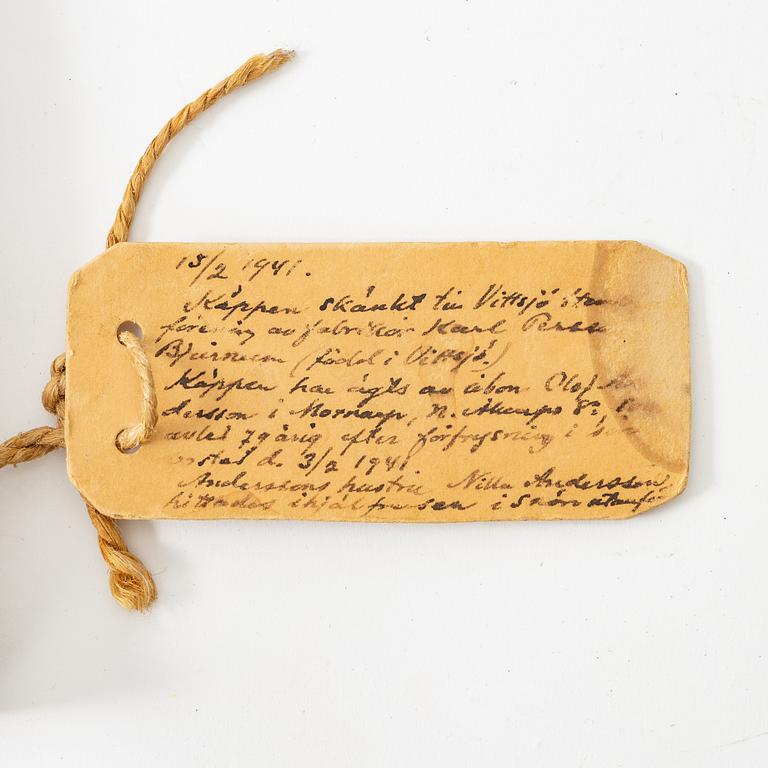 15/2 1941.
Käppen skänkt till Vittsjö
förening av fabrikör Karl
Bjärnum (född i Vittsjö.)
Käppen har ägts av åbon Olof
dersson i Mornarp, N. Akarps
avled 79 årig efter förfrysning i
d. 3/2 1941
Anderssons hustru Nilla Andersson,
hittades ihjälfrusen i snön utanför